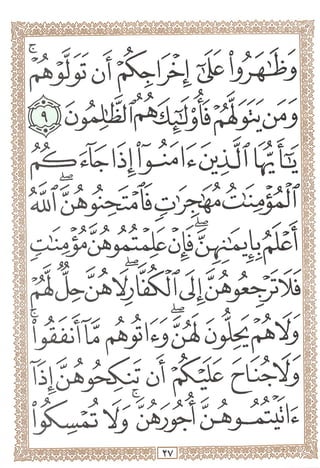 وَظَٰهَرُوا۟ عَلَىٰٓ إِخْرَاجِكُمْ أَن تَوَلَّوْهُمْ ۚ
وَمَن يَتَوَلَّهُمْ فَأُو۟لَٰٓئِكَ هُمُ ٱلظَّٰلِمُونَ ٩
يَٰٓأَيُّهَا ٱلَّذِينَ ءَامَنُوٓا۟ إِذَا جَآءَكُمُ
ٱلْمُؤْمِنَٰتُ مُهَٰجِرَٰتٍ فَٱمْتَحِنُوهُنَّ ۖ ٱللَّهُ
أَعْلَمُ بِإِيمَٰنِهِنَّ ۖ فَإِنْ عَلِمْتُمُوهُنَّ مُؤْمِنَٰتٍ
فَلَا تَرْجِعُوهُنَّ إِلَى ٱلْكُفَّارِ ۖ لَا هُنَّ حِلٌّ لَّهُمْ
وَلَا هُمْ يَحِلُّونَ لَهُنَّ ۖ وَءَاتُوهُم مَّآ أَنفَقُوا۟ ۚ
وَلَا جُنَاحَ عَلَيْكُمْ أَن تَنكِحُوهُنَّ إِذَآ
ءَاتَيْتُمُوهُنَّ أُجُورَهُنَّ ۚ وَلَا تُمْسِكُوا۟
٢٧